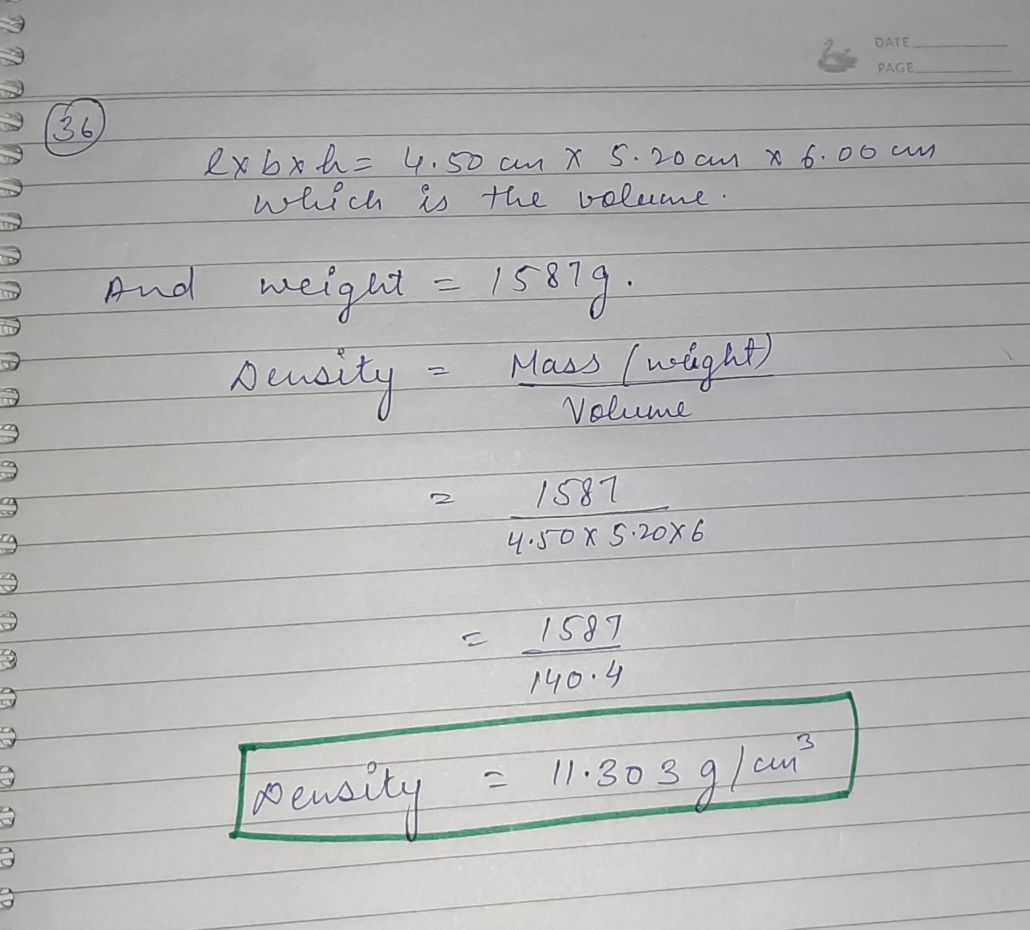 DATE
PAGE
36
l x b x h = 4.50 cm x 5.20 cm x 6.00 cm
which is the volume.
And weight = 1587g.
Density = Mass (weight)
Volume
= 1587
4.50 x 5.20 x 6
= 1587
140.4
Density = 11.303 g/cm³